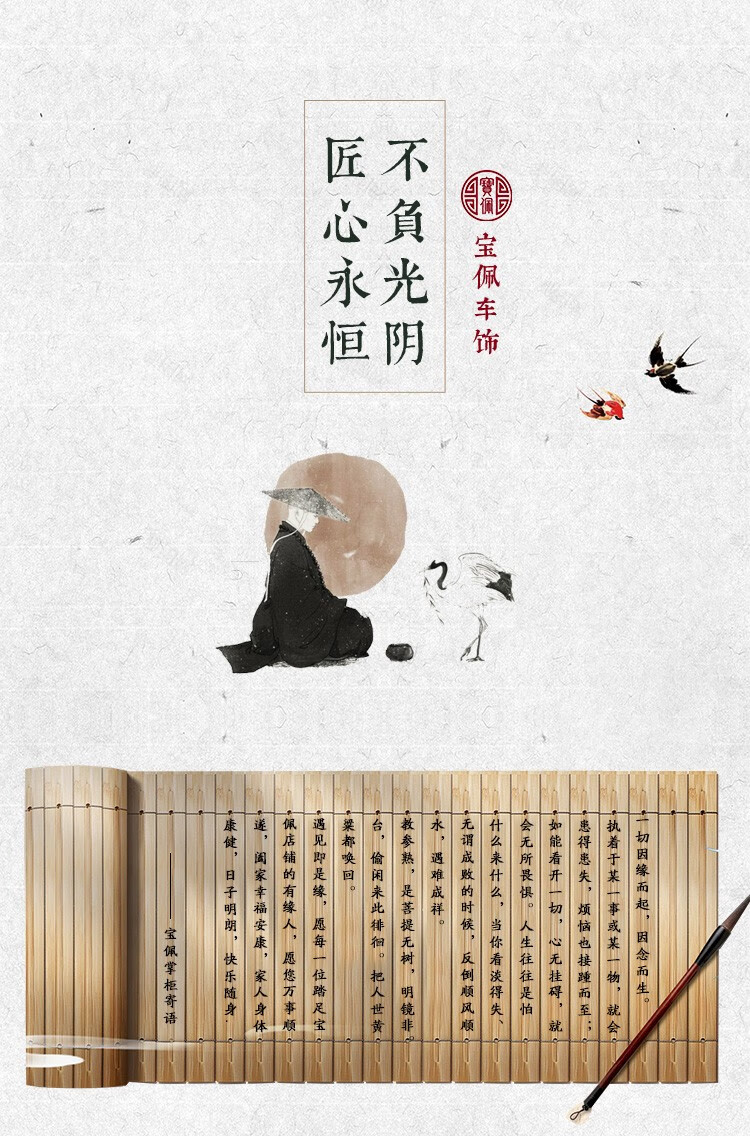 不負光阴
匠心永恒
寶佩
宝佩车饰
一切因缘而起，因念而生。
执着于某一事或某一物，就会
患得患失，烦恼也接踵而至；
如能看开一切，心无挂碍，就
会无所畏惧。人生往往是怕
什么来什么，当你看淡得失、
无谓成败的时候，反倒顺风顺
水，遇难成祥。
教参熟，是菩提无树，明镜非
台，偷闲来此徘徊。把人世黄
粱都唤回。
遇见即是缘，愿每一位踏足宝
佩店铺的有缘人，愿您万事顺
遂，阖家幸福安康，家人身体
康健，日子明朗，快乐随身.
——宝佩掌柜寄语